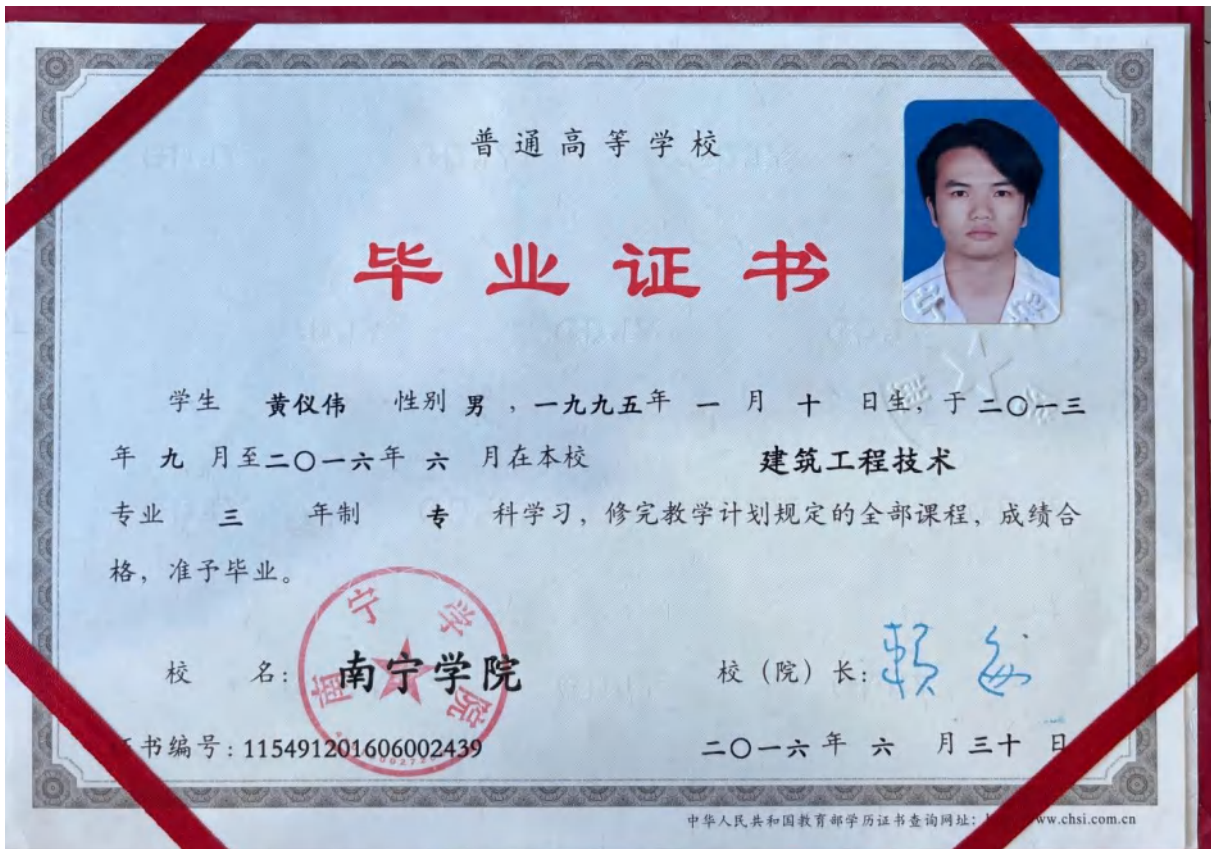 普通高等学校
毕业证书
学生 黄仪伟 性别 男 ，一九九五年 一 月 十 日生，于二〇一三
年 九 月至二〇一六年 六 月在本校 建筑工程技术
专业 三 年制 专 科学习，修完教学计划规定的全部课程，成绩合
格，准予毕业。
校 名：南宁学院
南宁学院
校（院）长：
书编号：115491201606002439
二〇一六年 六 月三十日
中华人民共和国教育部学历证书查询网址： www.chsi.com.cn